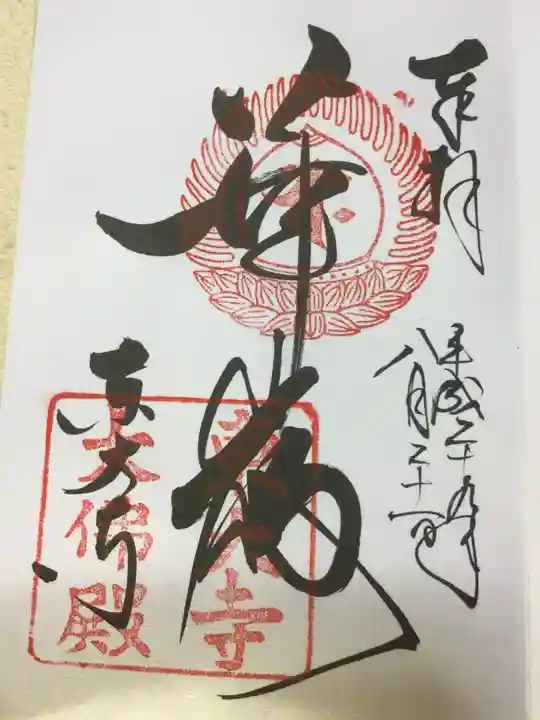 奉拝
平成二十九年
八月三十一日
華厳
東大寺
東大寺
大佛殿